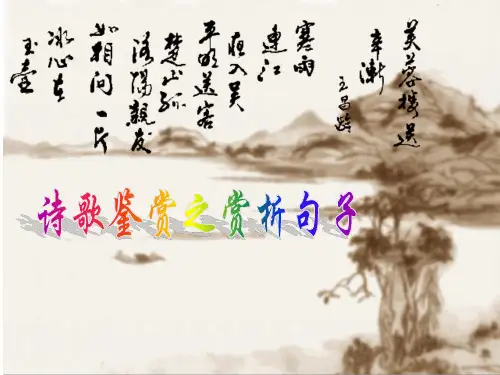 芙蓉楼送
辛渐
王昌龄
寒雨
连江
夜入吴
平明送客
楚山孤
洛阳亲友
如相问一片
冰心在
玉壶
诗歌鉴赏之赏析句子